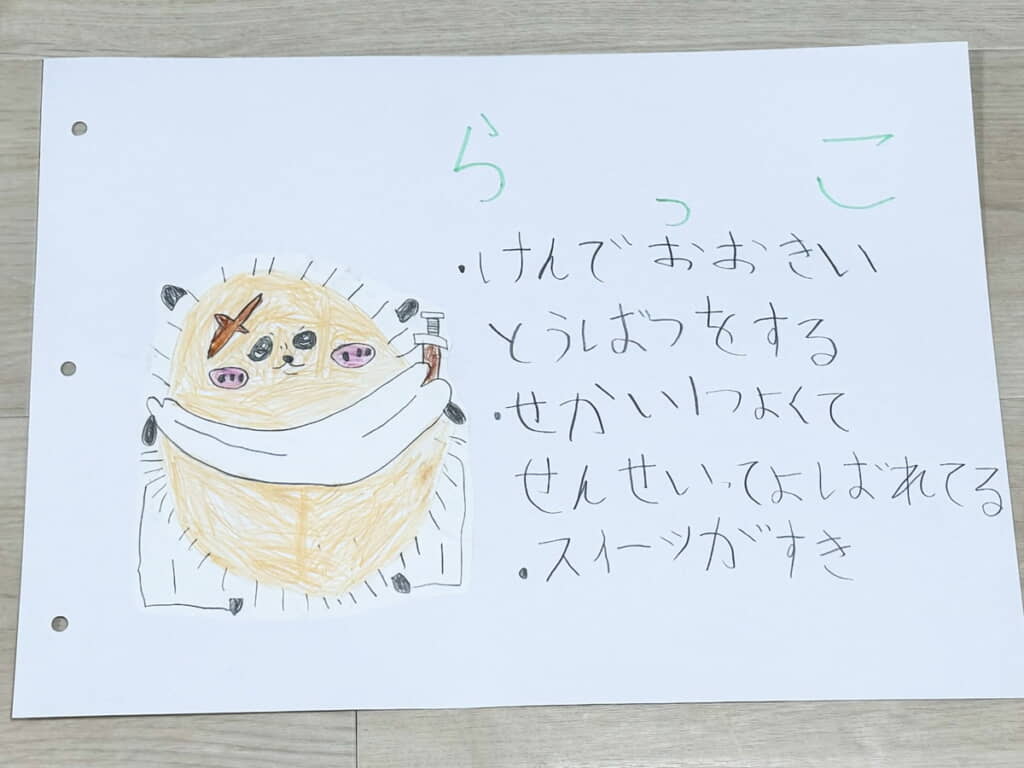 らっこ
・けんでおおきい
とうばつをする
・せかい1つよくて
せんせいってよばれてる
・スイーツがすき